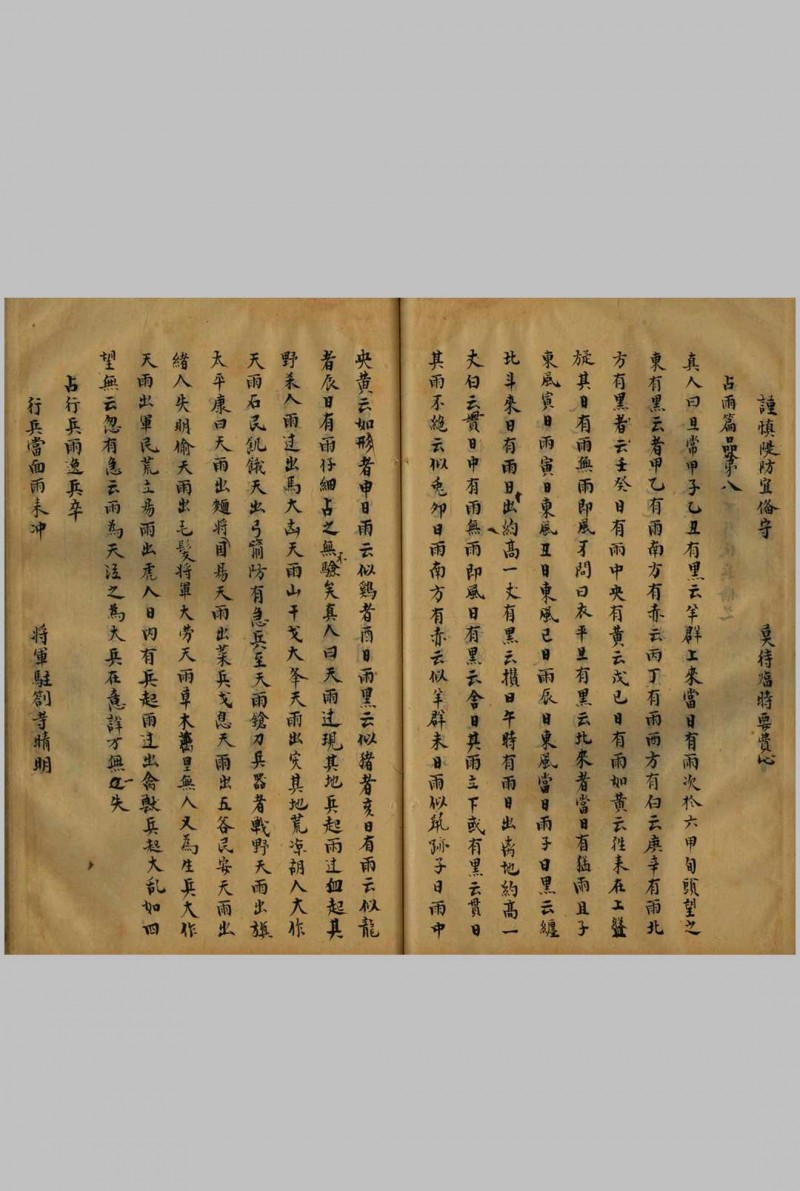 謹慎隄防宜俻守　莫待臨時要費心
占雨篇品第八
真人曰且常甲子乙丑有黑云羊群上來當日有雨次於六甲旬頭望之
東有黑云者甲乙有雨南方有赤云丙丁有雨西方有白云庚辛有雨北
方有黑者云壬癸日有雨中央有黄云戊己日有雨如黄云徃来在上盤
旋其日有雨無雨即風牙問曰衣平旦有黑云北來者當日有猛雨且子
東風寅日雨寅日東風丑日東風已日雨辰日東風當日雨子日黑云纏
北斗來日有雨日出約高一丈有黑云攢日午時有雨日出离地約高一
丈白云貫日中有雨無雨即風日有黑云舍日其雨立下或有黑云貫日
其雨不絶云似兎卯日雨南方有赤云似羊群未日雨似䑕孙子日雨中
央黄云如形者申日雨云似鷄者酉日雨黑云似猪者亥日有雨云似龍
者辰日有雨仔細占之無不驗矣真人曰天雨过現其地兵起雨过血起其
野来人雨过出馬大凶天雨山干戈大夅天雨出灾其地荒凉胡人大作
天雨石民飢餓天出弓箭防有急兵至天雨鎗刀兵器者戰野天雨出旗
太平康曰天雨出麺將囯易天雨出菜兵戈息天雨出五谷民安天雨出
緒人失明偷天雨出毛髮將軍大劳天雨草木萬里無人又為生兵大作
天雨出軍民荒立易雨出虎人日内有兵起雨过出禽獸兵起大乱如四
望無云忽有急云雨為天泣之為大兵在意詳方無一失
占行兵雨逸兵卒
行兵當面雨来冲　將軍駐劄䓁晴明